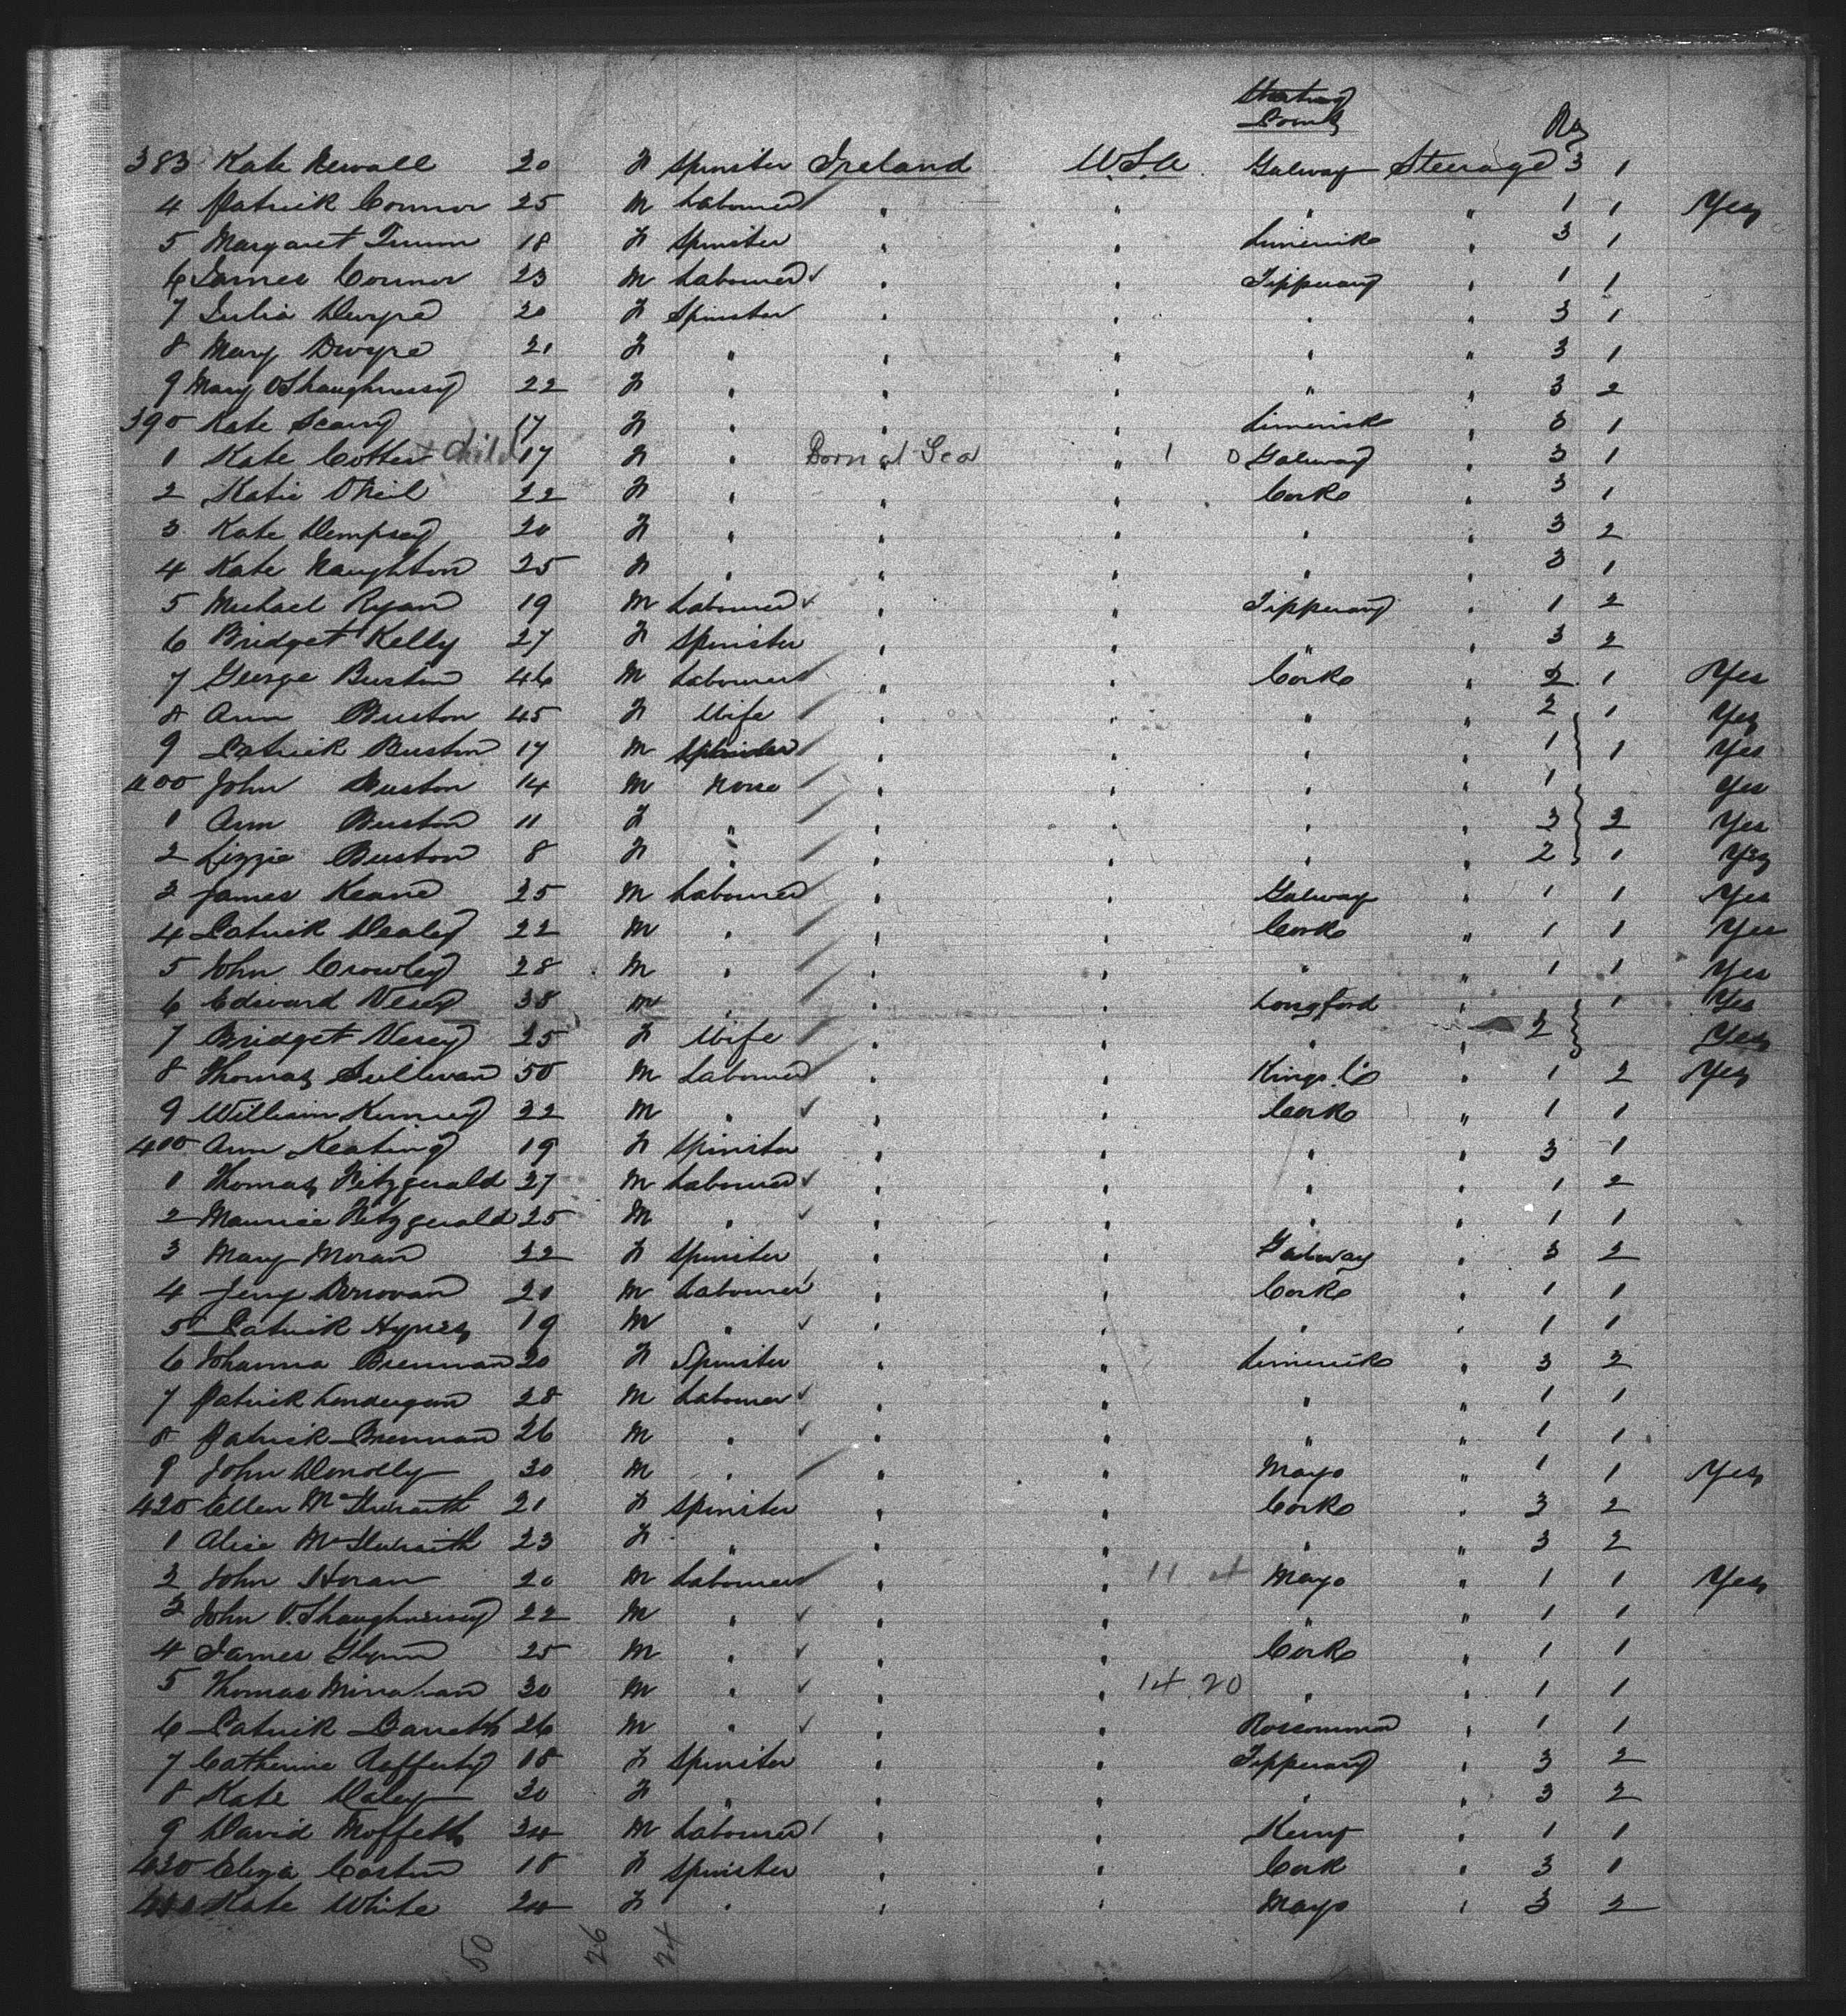 Starting
County
383 Kate Newall 20 F Spinster Ireland U.S.A Galway Steerage 3 1
4 Patrick Connor 25 M Labourer " " " " 1 1 Yes
5 Margaret 18 F Spinster " " Limerick " 3 1
6 James Connor 23 M Labourer " " Tipperary " 1 1
7 Julia Dwyre 20 F Spinster " " " " 3 1
8 Mary Dwyre 21 F " " " " " 3 1
9 Mary O'Shaughnessy 22 F " " " " " 3 2
390 Kate Scany 17 F " " " Limerick " 3 1
1 Kate Cotter + child 17 F " Born at Sea " 1 0 Galway " 3 1
2 Katie O'Neil 22 F " " " Cork " 3 1
3 Kate Dempsey 20 F " " " " " 3 2
4 Kate Naughton 25 F " " " " " 3 1
5 Michael Ryan 19 M Labourer " " Tipperary " 1 2
6 Bridget Kelly 27 F Spinster " " " " 3 2
7 George Buston 46 M Labourer " " Cork " 2 1 Yes
8 Ann Buston 45 F Wife " " " " 2 1 Yes
9 Patrick Buston 17 M " " " " 1 1 Yes
400 John Buston 14 M None " " " " 1 Yes
1 Ann Buston 11 F " " " " " 3 2 Yes
2 Lizzie Buston 8 F " " " " " 2 1 Yes
3 James Keane 25 M Labourer " " Galway " 1 1 Yes
4 Patrick Dealey 22 M " " " Cork " 1 1 Yes
5 John Crowley 28 M " " " " " 1 1 Yes
6 Edward Vesey 38 M " " " Longford " 1 Yes
7 Bridget Vesey 25 F Wife " " " " 2 Yes
8 Thomas Sullivan 50 M Labourer " " Kings Co " 1 2 Yes
9 William 22 M " " " Cork " 1 1
400 Ann Keating 19 F Spinster " " " " 3 1
1 Thomas Fitzgerald 27 M Labourer " " " " 1 2
2 Maurice Fitzgerald 25 M " " " " " 1 1
3 Mary Moran 22 F Spinster " " Galway " 3 2
4 Jerry Donovan 21 M Labourer " " Cork " 1 1
5 Patrick Hynes 19 M " " " " " 1 1
6 Johanna Brennan 20 F Spinster " " Limerick " 3 2
7 Patrick Londergan 28 M Labourer " " " " 1 1
8 Patrick Brennan 26 M " " " " " 1 1
9 John Donolly 30 M " " " Mayo " 1 1 Yes
420 Ellen 21 F Spinster " " Cork " 3 2
1 Alice 23 F " " " " " 3 2
2 John Horan 20 M Labourer " " 11 4 Mayo " 1 1 Yes
3 John O'Shaughnessy 22 M " " " " " 1 1
4 James Glynn 25 M " " " Cork " 1 1
5 Thomas Minahan 30 M " " " 14 20 " " 1 1
6 Patrick Barrett 26 M " " " Roscommon " 1 1
7 Catherine Rafferty 18 F Spinster " " Tipperary " 3 2
8 Kate Daley 30 F " " " " " 3 2
9 David Moffett 24 M Labourer " " Kerry " 1 1
430 Eliza Costin 18 F Spinster " " Cork " 3 1
Kate White 24 F " " " Mayo " 3 2
50 26 24